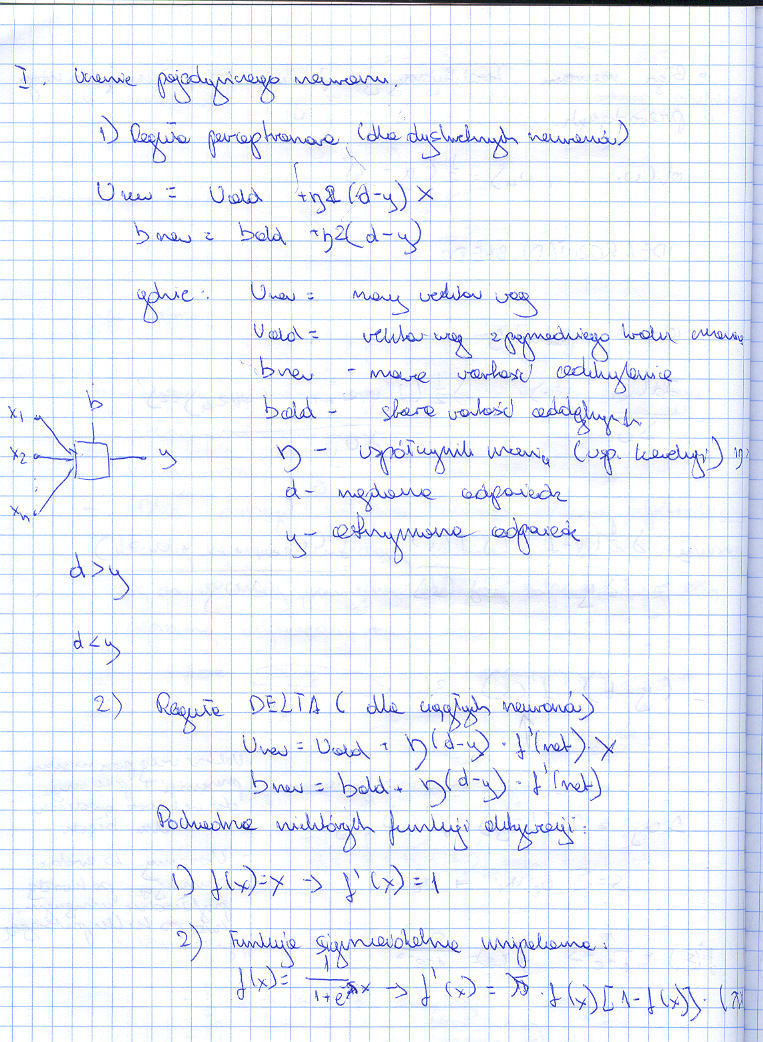 I. Uczenie pojedynczego neuronu.
1) Reguła perceptronowa (dla dyskretnych neuronów)
Wnew = Wold + η (d-y) X
bnew = bold + η (d-y)
gdzie: Wnew = nowy wektor wag
Wold = wektor wag z poprzedniego kroku uczenia
bnew - nowa wartość odchylenia
b
x1
bold - stara wartość
x2
y
η - współczynnik uczenia (wsp. korekcji)
xn
d - żądana odpowiedź
y - otrzymana odpowiedź
d>y
d<y
2) Reguła DELTA (dla ciągłych neuronów)
Wnew = Wold + η(d-y) · f'(net) · X
bnew = bold + η(d-y) · f'(net)
Pochodne niektórych funkcji aktywacji:
1) f(x)=x → f'(x)=1
2) Funkcja sigmoidalna unipolarna:
f(x)= 1/(1+e x) → f'(x) = · f(x)[1-f(x)] ·